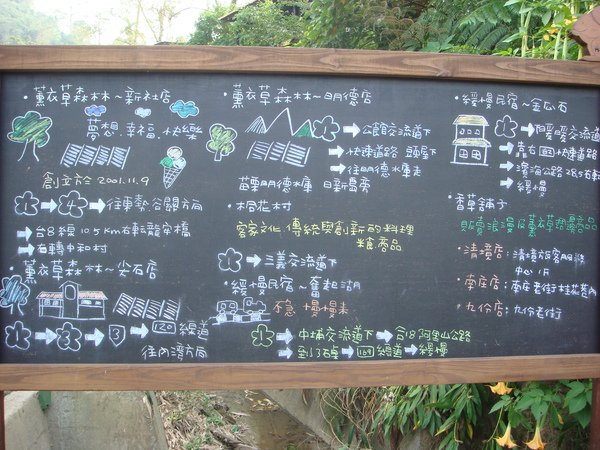 ·薰衣草森林~新社店
夢想.幸福.快樂
創立於2001.11.9
1 4 往東勢.谷關方向
台8線 10.5 Km右東龍安橋
右轉中和村
·薰衣草森林~尖石店
1 3 3 120 縣道
往內灣方向
·薰衣草森林~明德店
1 公館交流道下
快速道路 頭屋下
往明德水庫走
苗栗明德水庫 日新島旁
·桐花村
客家文化.傳統與創新的料理
糕餅商品
1 三義交流道下
·緩慢民宿~奮起湖
不急.慢慢來
1 中埔交流道下 台18阿里山公路
到 石桌 169 縣道 緩慢
·緩慢民宿~金瓜石
1 暖暖交流道
靠右 快速道路
濱海公路
緩慢
·香草舖子
販賣浪漫及薰衣草週邊商品
·清境店:清境旅客服務
中心1F
·南庄店:南庄老街桂花巷內
·九份店:九份老街